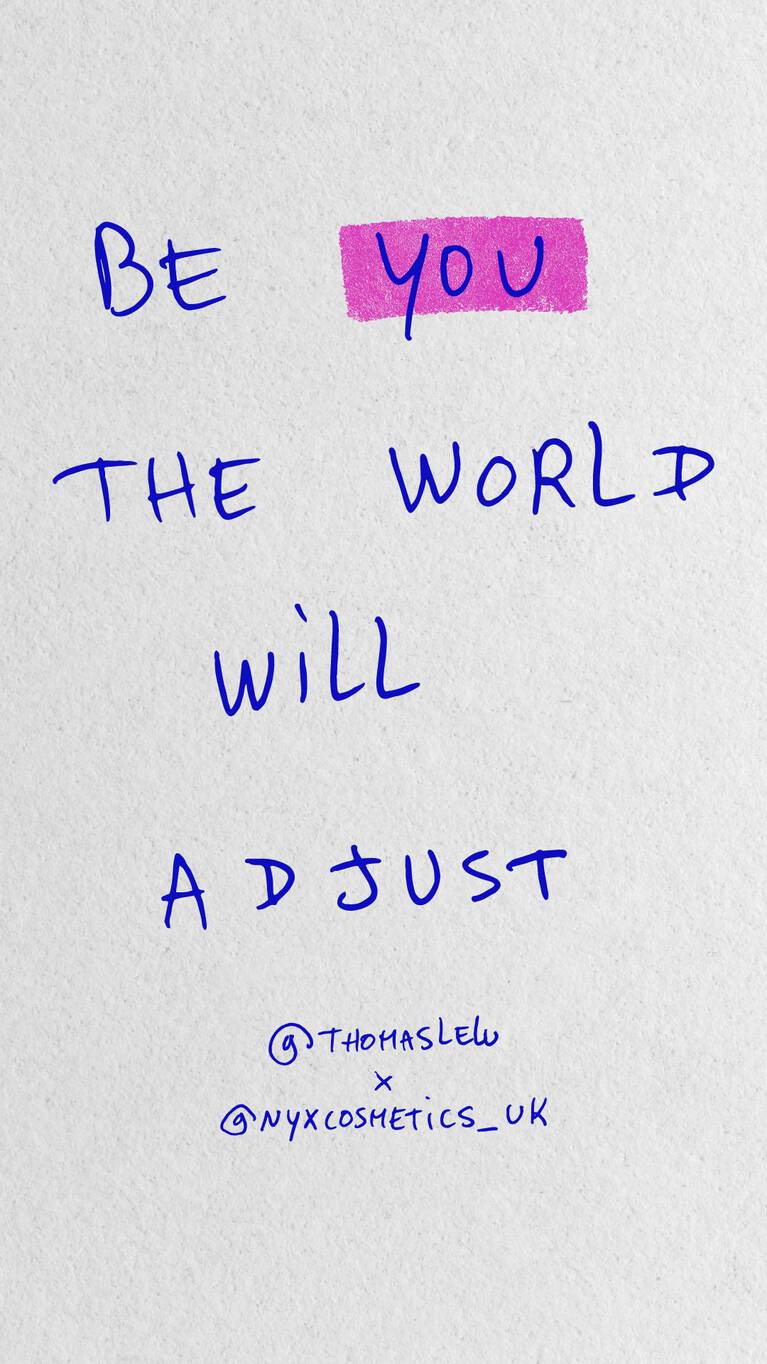 BE YOU
THE WORLD
WiLL
ADJUST
@THOMASLELU
x
@NYXCOSMETiCS_UK